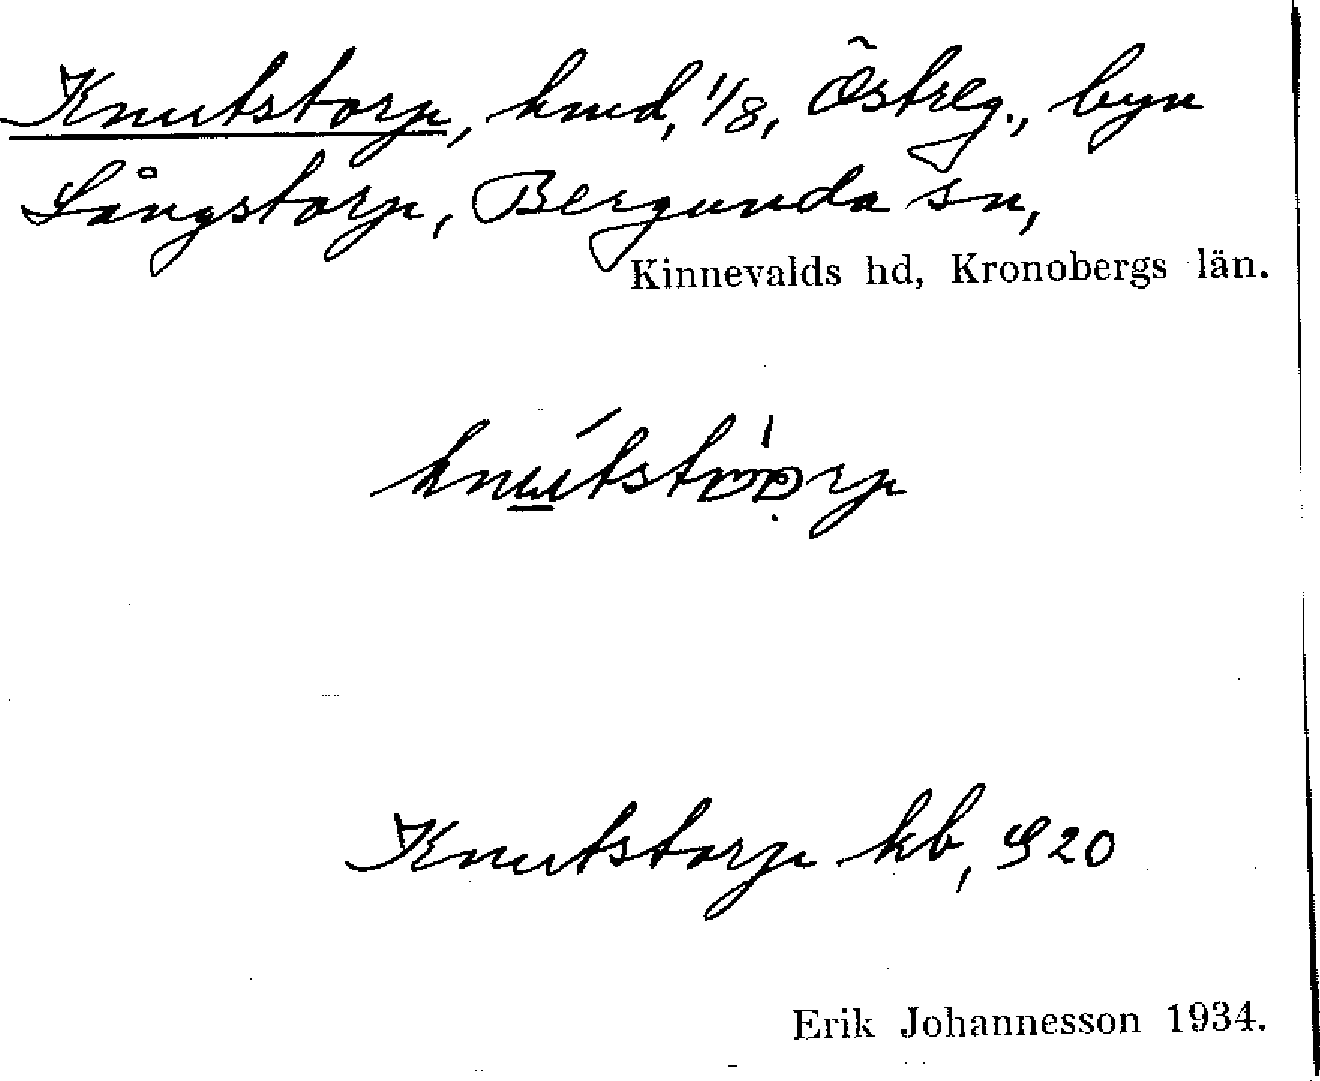 Knutstorp, hmd, 1/8, Östreg., byn
Långstorp, Bergunda sn,
Kinnevalds hd, Kronobergs län.
Knutstorp kb, S20
Erik Johannesson 1934.